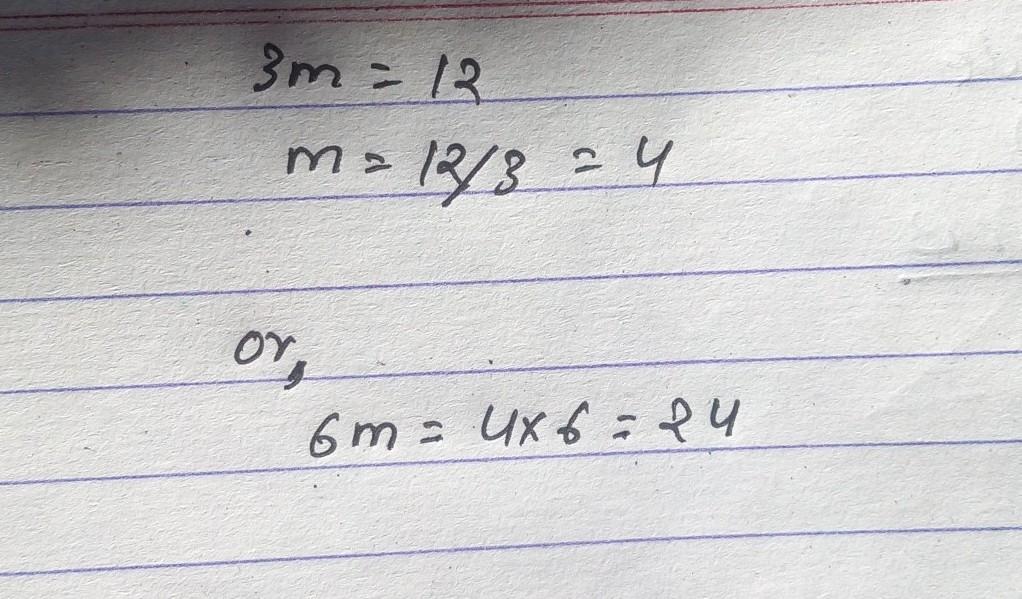 3m = 12
m = 12/3 = 4
or,
6m = 4x6 = 24